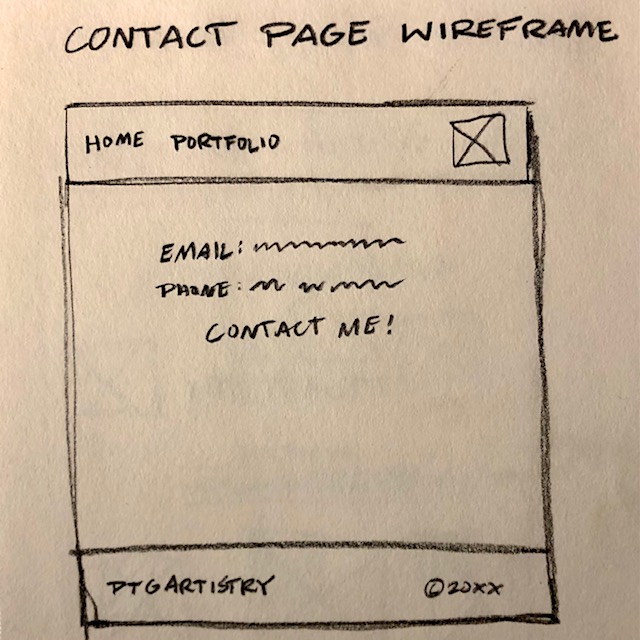 CONTACT PAGE WIREFRAME
HOME PORTFOLIO
EMAIL:
PHONE:
CONTACT ME!
PTGARTISTRY ©20XX